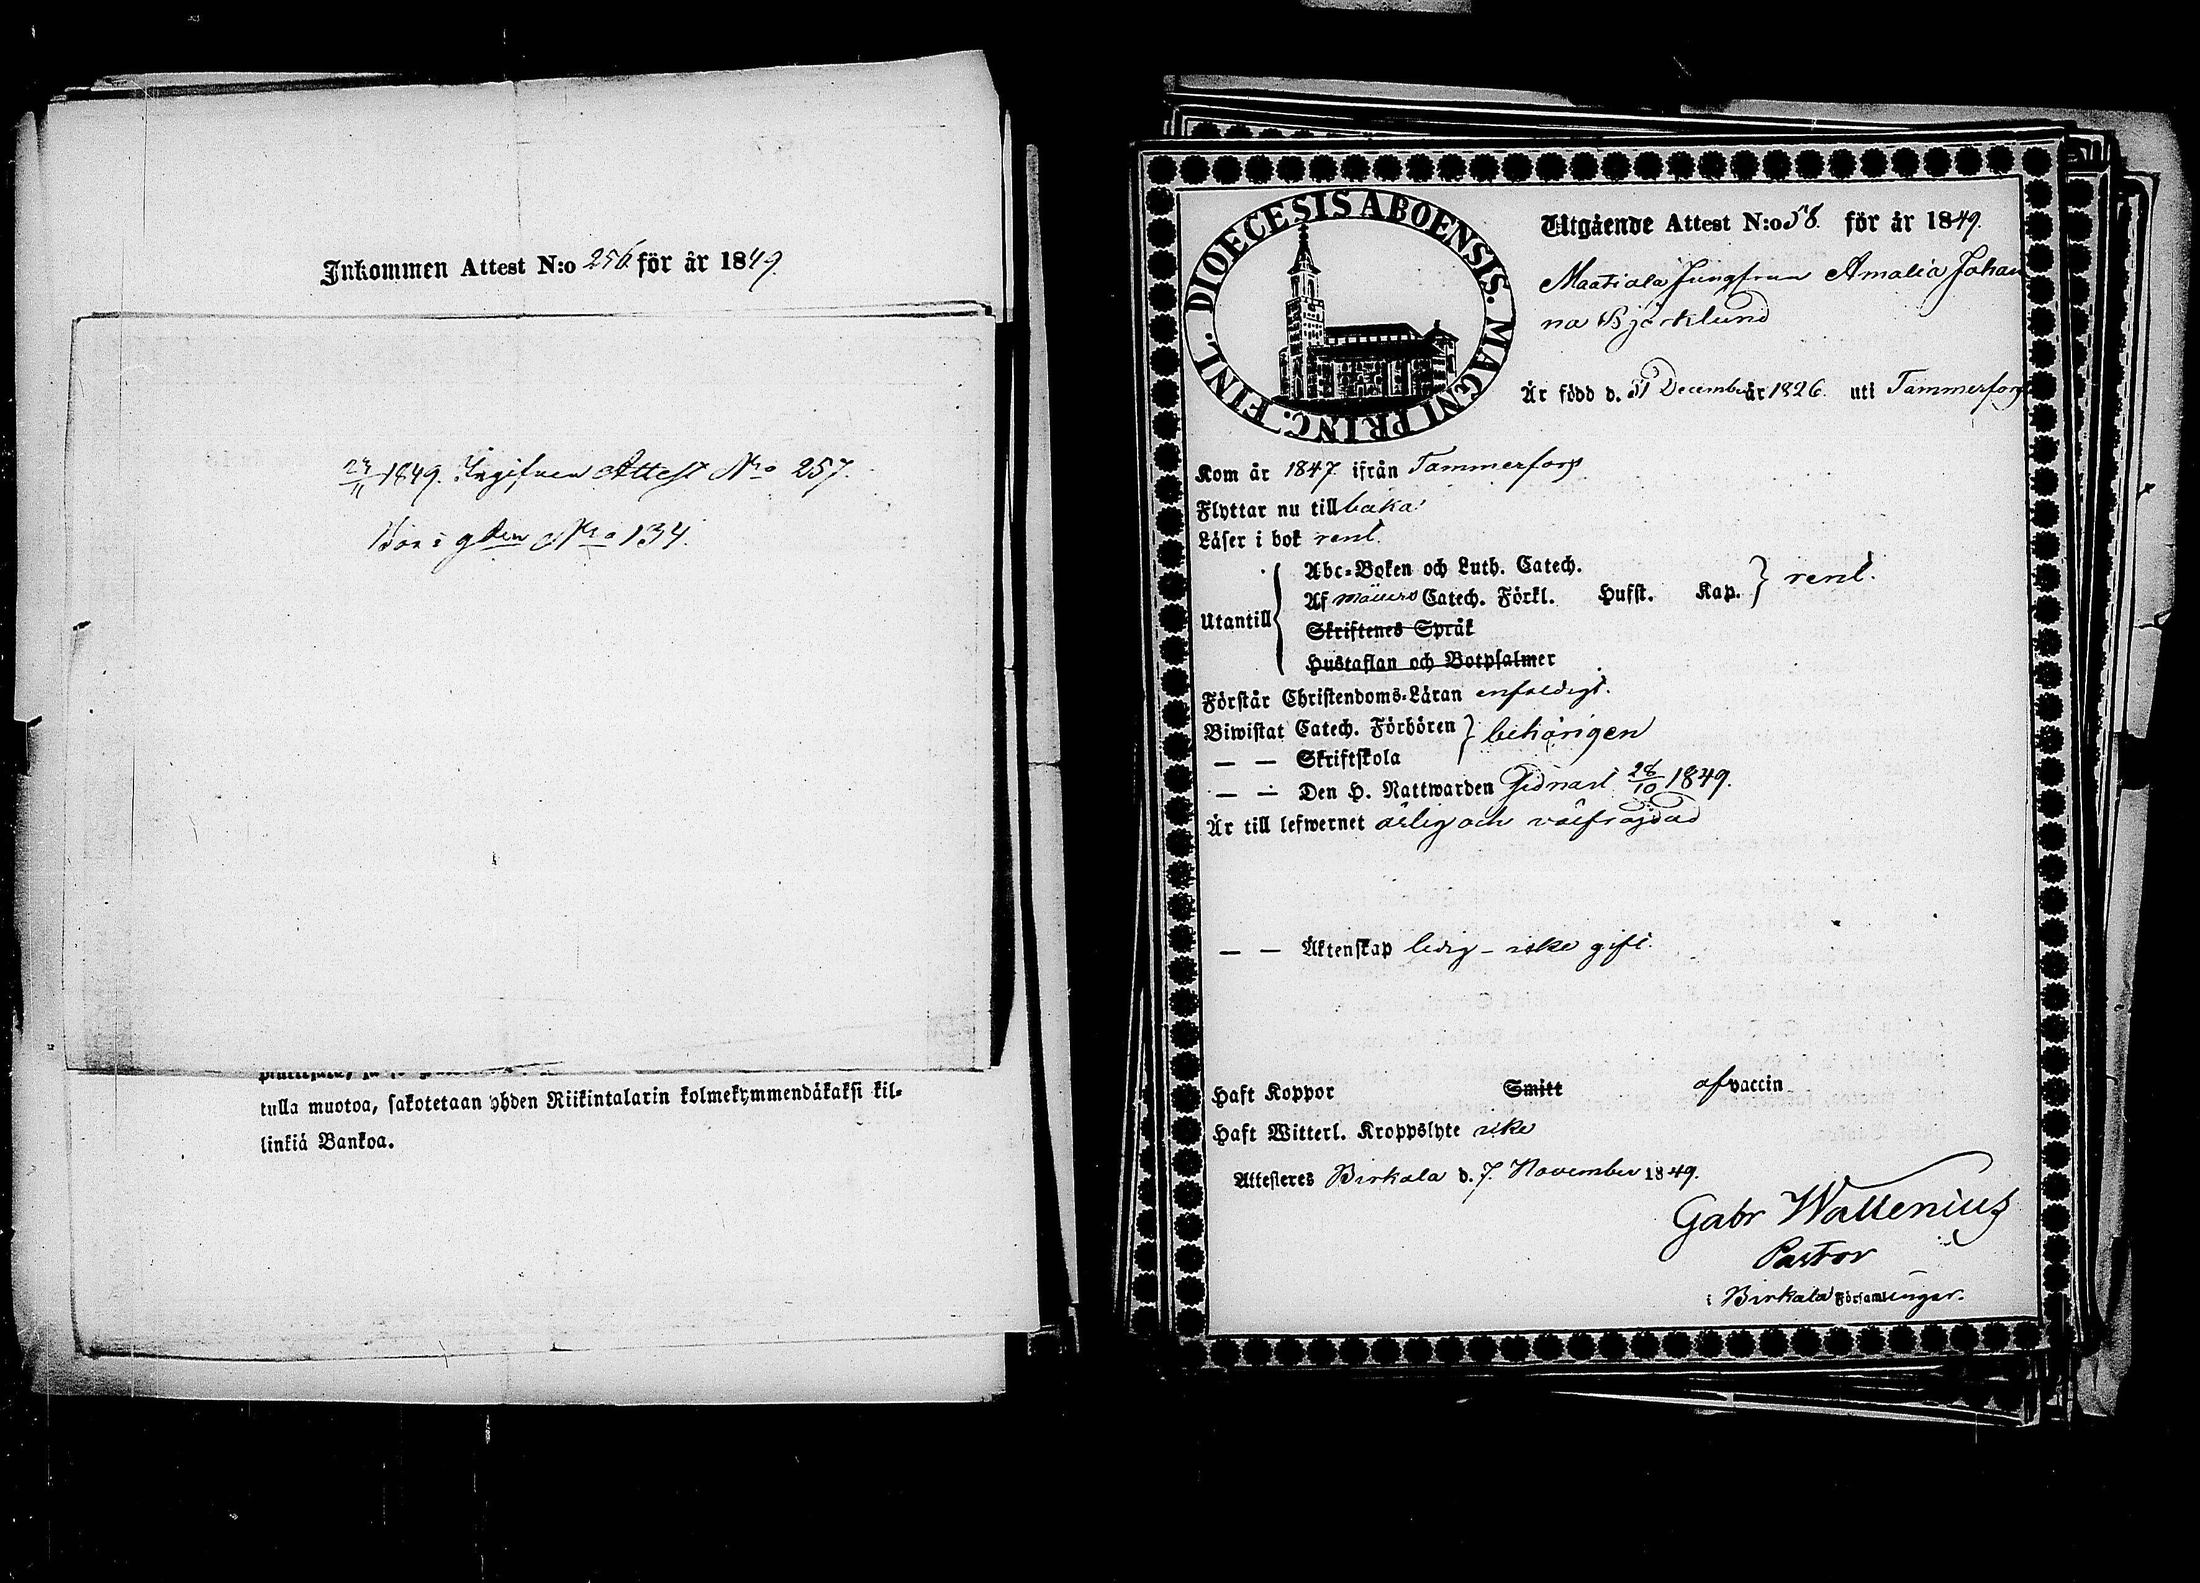 Inkommen Attest N:o 256 för år 1849.
27/11 1849. Ingifven Attest Nro 257.
Bor i 9den Nro 134.
tulla muotoa, sakotetaan yhden Riikintalarin kolmekymmendäkaksi kil-
linkiä Bankoa.
DIOECESIS ABOENSIS. MAGNI PRINC. FINL.
Utgående Attest N:o 58. för år 1849.
Maatiala Jungfrun Amalia Johan
na Björklund
Är född d. 31 December år 1826. uti Tammerfors
Kom år 1847. ifrån Tammerfors
Flyttar nu till baka
Läser i bok rent.
Utantill { Abc-Boken och Luth. Catech.
Af Möllers Catech. Förkl. Husst. Kap. } rent.
Skriftenes Språk
Hustaflan och Botpsalmer
Förstår Christendoms-Läran enfaldigt.
Biwistat Catech. Förhören } behörigen
— — Skriftskola
— — Den H. Nattwarden sednast 28/10 1849.
Är till lefwernet ärlig och välfräjdad
— — Äktenskap ledig - icke gift.
Haft Koppor Smitt af vaccin
Haft Witterl. Kroppslyte icke
Attesteres Birkala d. 7. November 1849.
Gabr Wallenius
Pastor
i Birkala Församlingar.